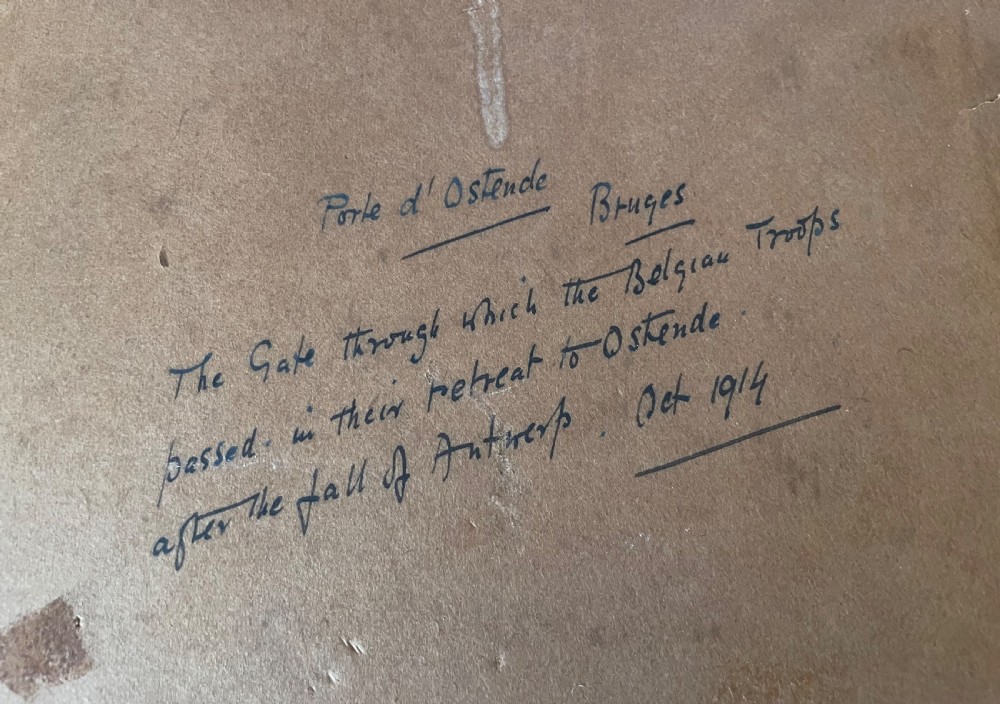 Porte d'Ostende Bruges
The Gate through which the Belgian Troops
passed. in their retreat to Ostende.
after the fall of Antwerp. Oct 1914